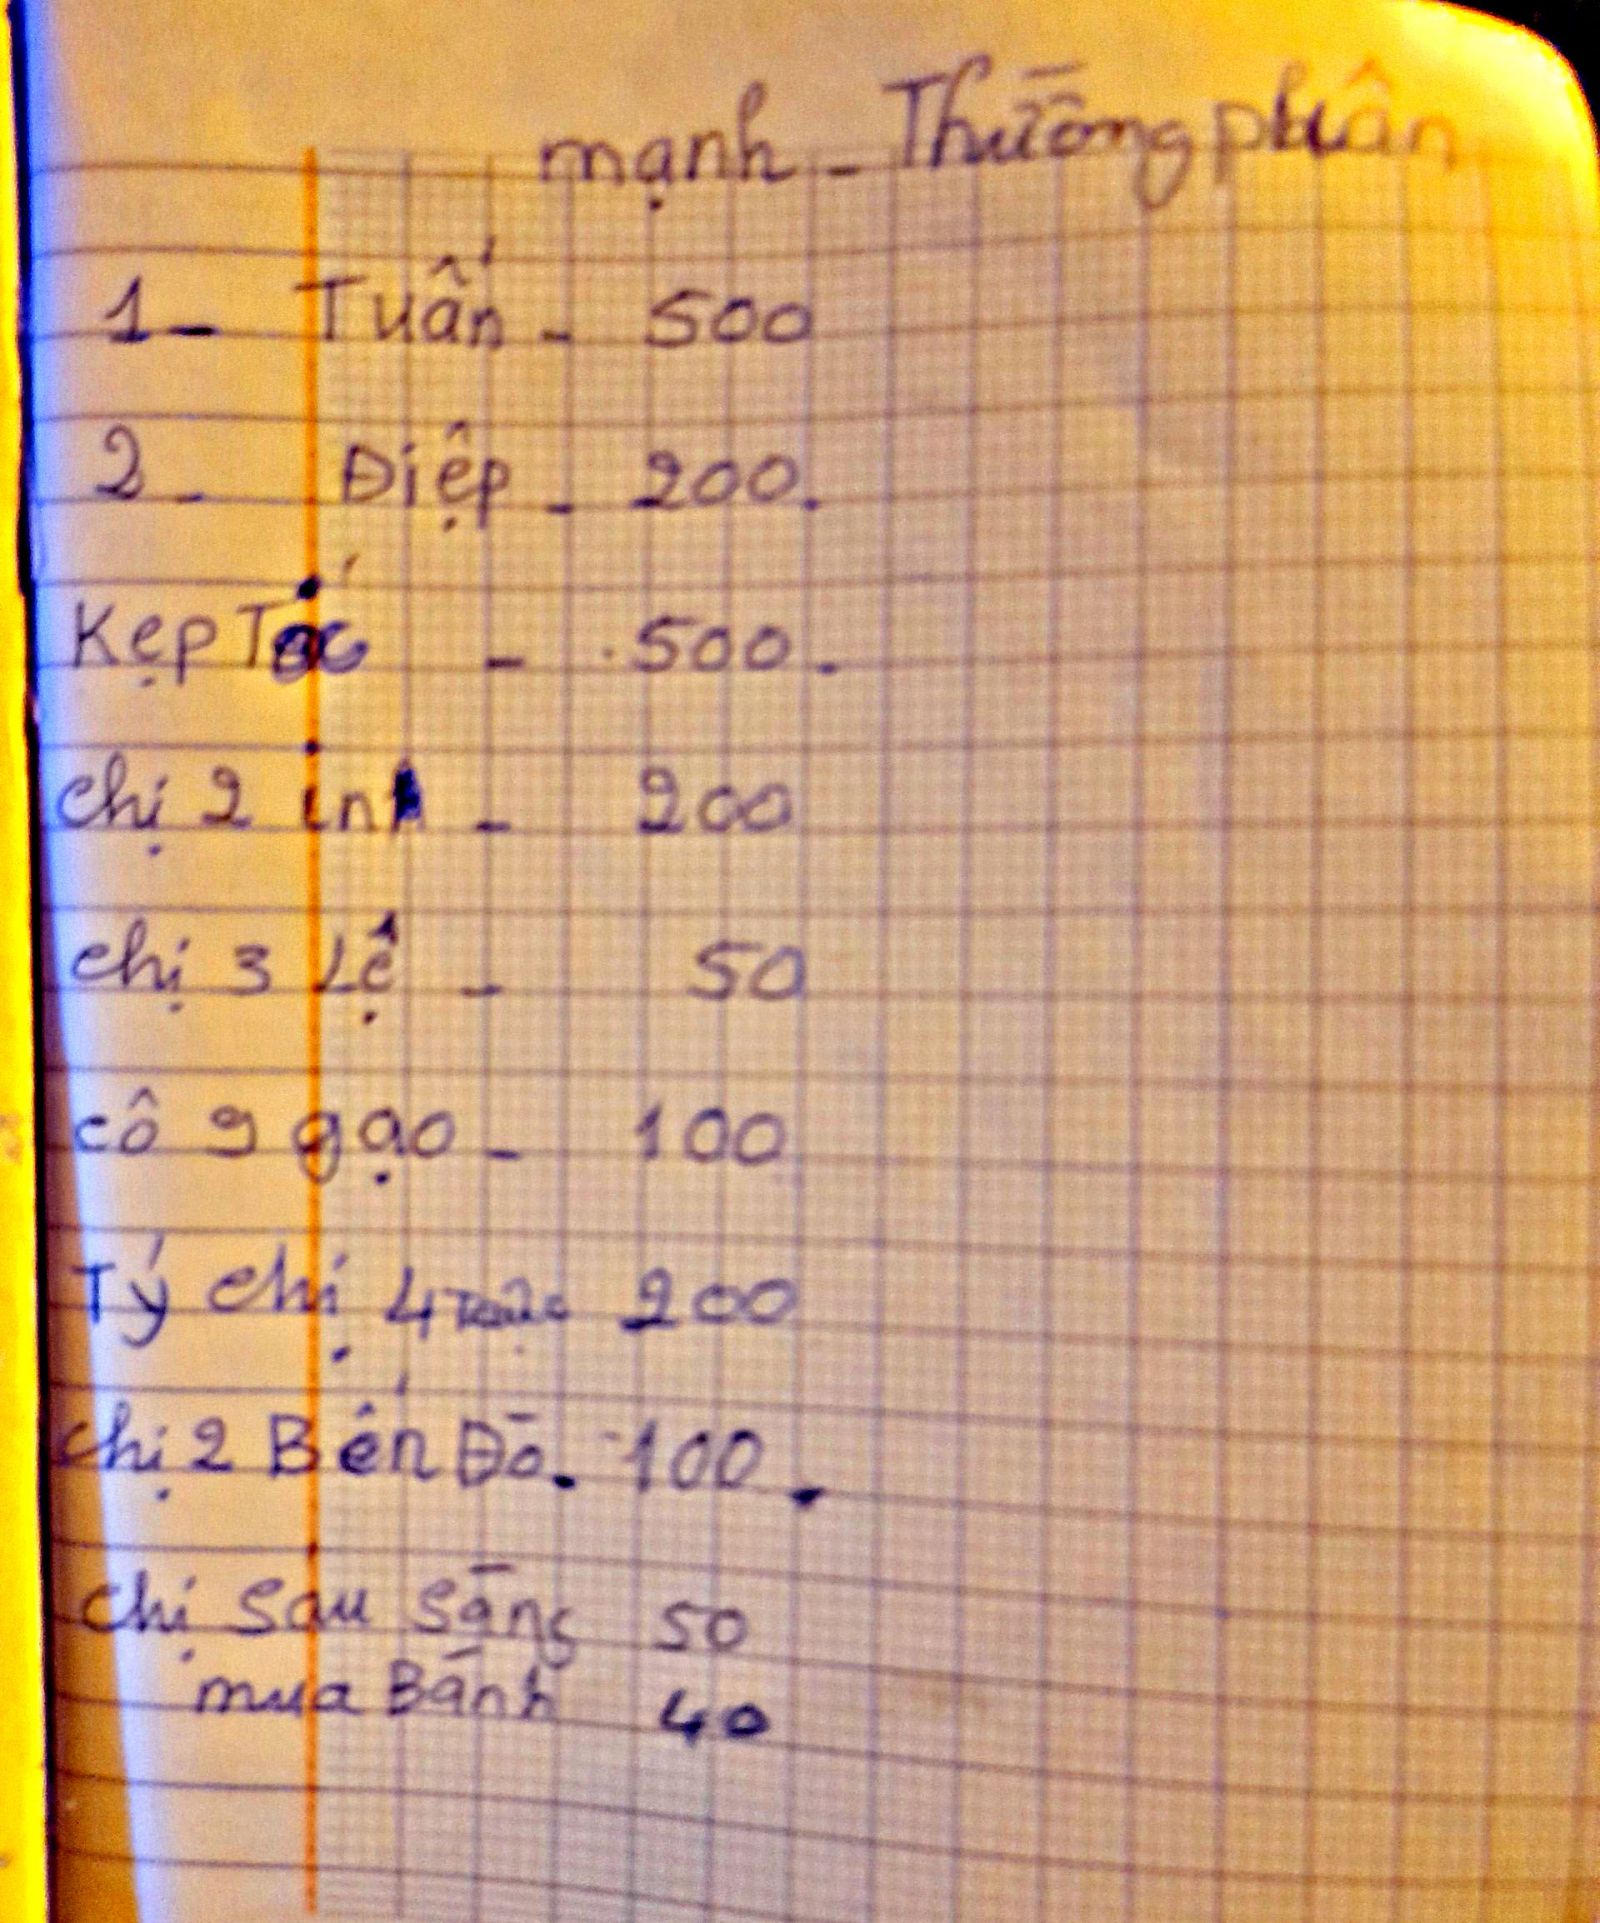 mạnh - Thường phuân
1 - Tuấn - 500
2 - Điệp - 200.
Kẹp Tóc - 500.
chị 2 in - 200
chị 3 Lệ - 50
cô 9 gạo - 100
Tý chị 4 200
chị 2 Bến Đò. 100.
chị sau sāng 50
mua Bánh 40